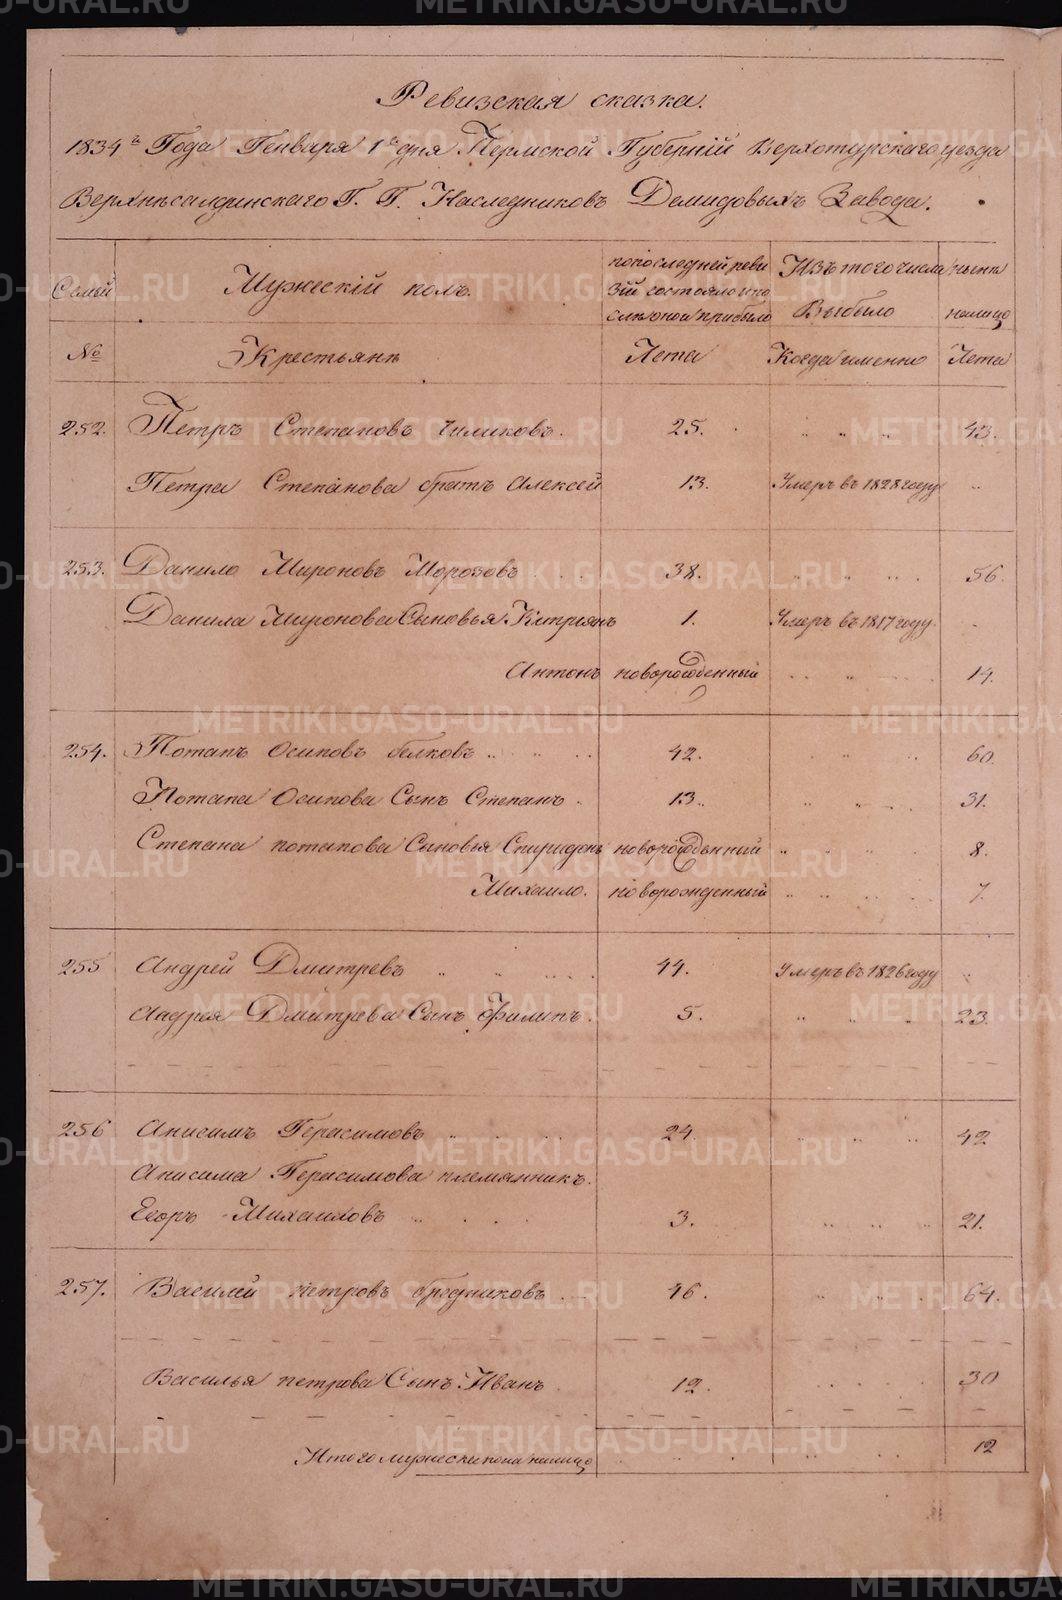 Ревизская сказка.
1834го Года Генваря 1го дня Пермской Губерніи Верхотурскаго уезда
Верхнѣсалдинскаго Г. Г. Наследниковъ Демидовыхъ Завода.
Семьи
Мужескій полъ.
по последней реви
зіи состояло и по
слѣ оной прибыло
Изъ того числа
Выбыло
нынѣ
налицо
№
Крестьянѣ
Лета
Когда именно
Лета
252. Петръ Степановъ Чиликовъ. 25. 43.
Петра Степанова братъ Алексей 13. Умеръ въ 1828 году
253. Данило Мироновъ Морозовъ 38. 56.
Данила Миронова Сыновья Киприянъ 1. Умеръ въ 1817 году.
Антонъ новорожденный 14.
254. Потапъ Осиповъ белковъ 42. 60.
Потапа Осипова Сынъ Степанъ. 13. 31.
Степана потапова Сыновья Спиридонъ новорожденный 8.
Михаило. новорожденный 7.
255 Андрей Дмитревъ 44. Умеръ въ 1826 году
Андрея Дмитрева Сынъ Филипъ. 5. 23.
256 Анисимъ Герасимовъ 24. 42
Анисима Герасимова племянникъ.
Егоръ Михаиловъ 3. 21.
257. Василей петровъ бредниковъ 46. 64.
Василья петрова Сынъ Иванъ 12. 30
Итого мужеска пола налицо 12
METRIKI.GASO-URAL.RU